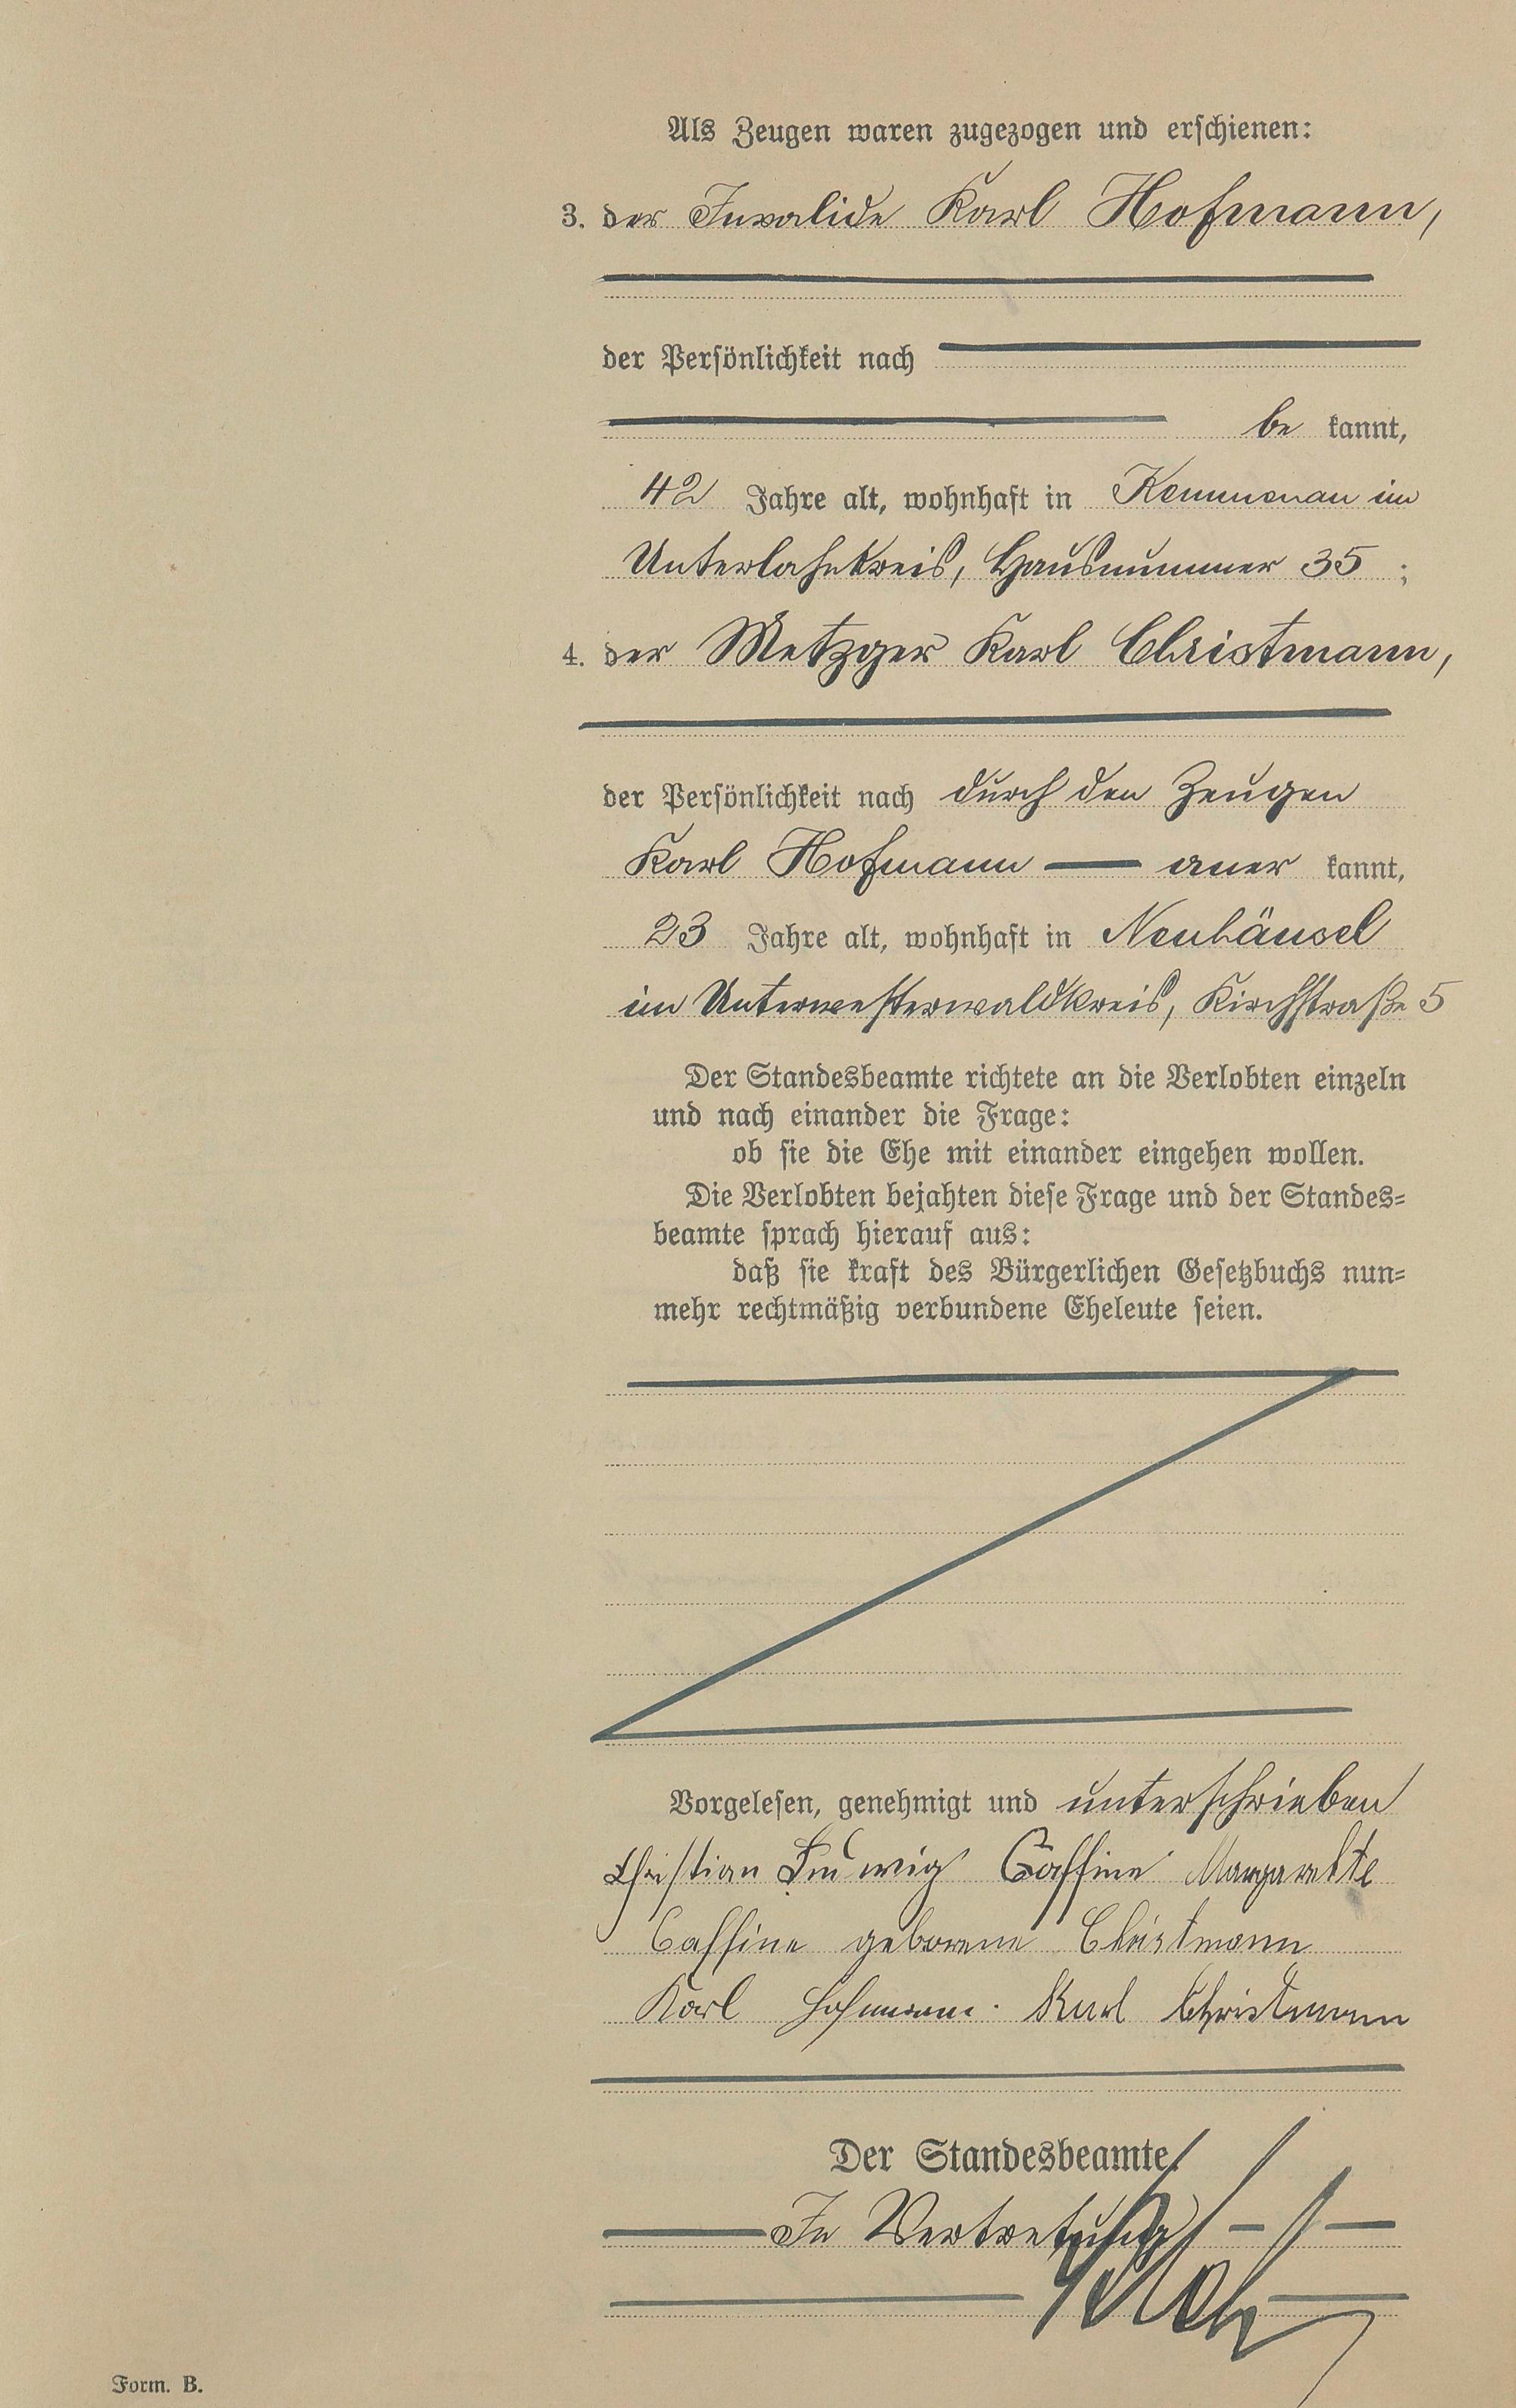 Als Zeugen waren zugezogen und erschienen:
3. der Invalide Karl Hofmann,
der Persönlichkeit nach
be kannt,
42 Jahre alt, wohnhaft in Kemmenau im
Unterlahnkreis, Hausnummer 35 ;
4. der Metzger Karl Christmann,
der Persönlichkeit nach durch den Zeugen
Karl Hofmann — aner kannt,
23 Jahre alt, wohnhaft in Neuhäusel
im Unterwesterwaldkreis, Kirchstraße 5
Der Standesbeamte richtete an die Verlobten einzeln
und nach einander die Frage:
ob sie die Ehe mit einander eingehen wollen.
Die Verlobten bejahten diese Frage und der Standes-
beamte sprach hierauf aus:
daß sie kraft des Bürgerlichen Gesetzbuchs nun-
mehr rechtmäßig verbundene Eheleute seien.
Vorgelesen, genehmigt und unterschrieben
Christian Ludwig Caffine Margarethe
Caffine geborene Christmann
Karl Hofmann. Karl Christmann
Der Standesbeamte.
In Vertretung
Form. B.